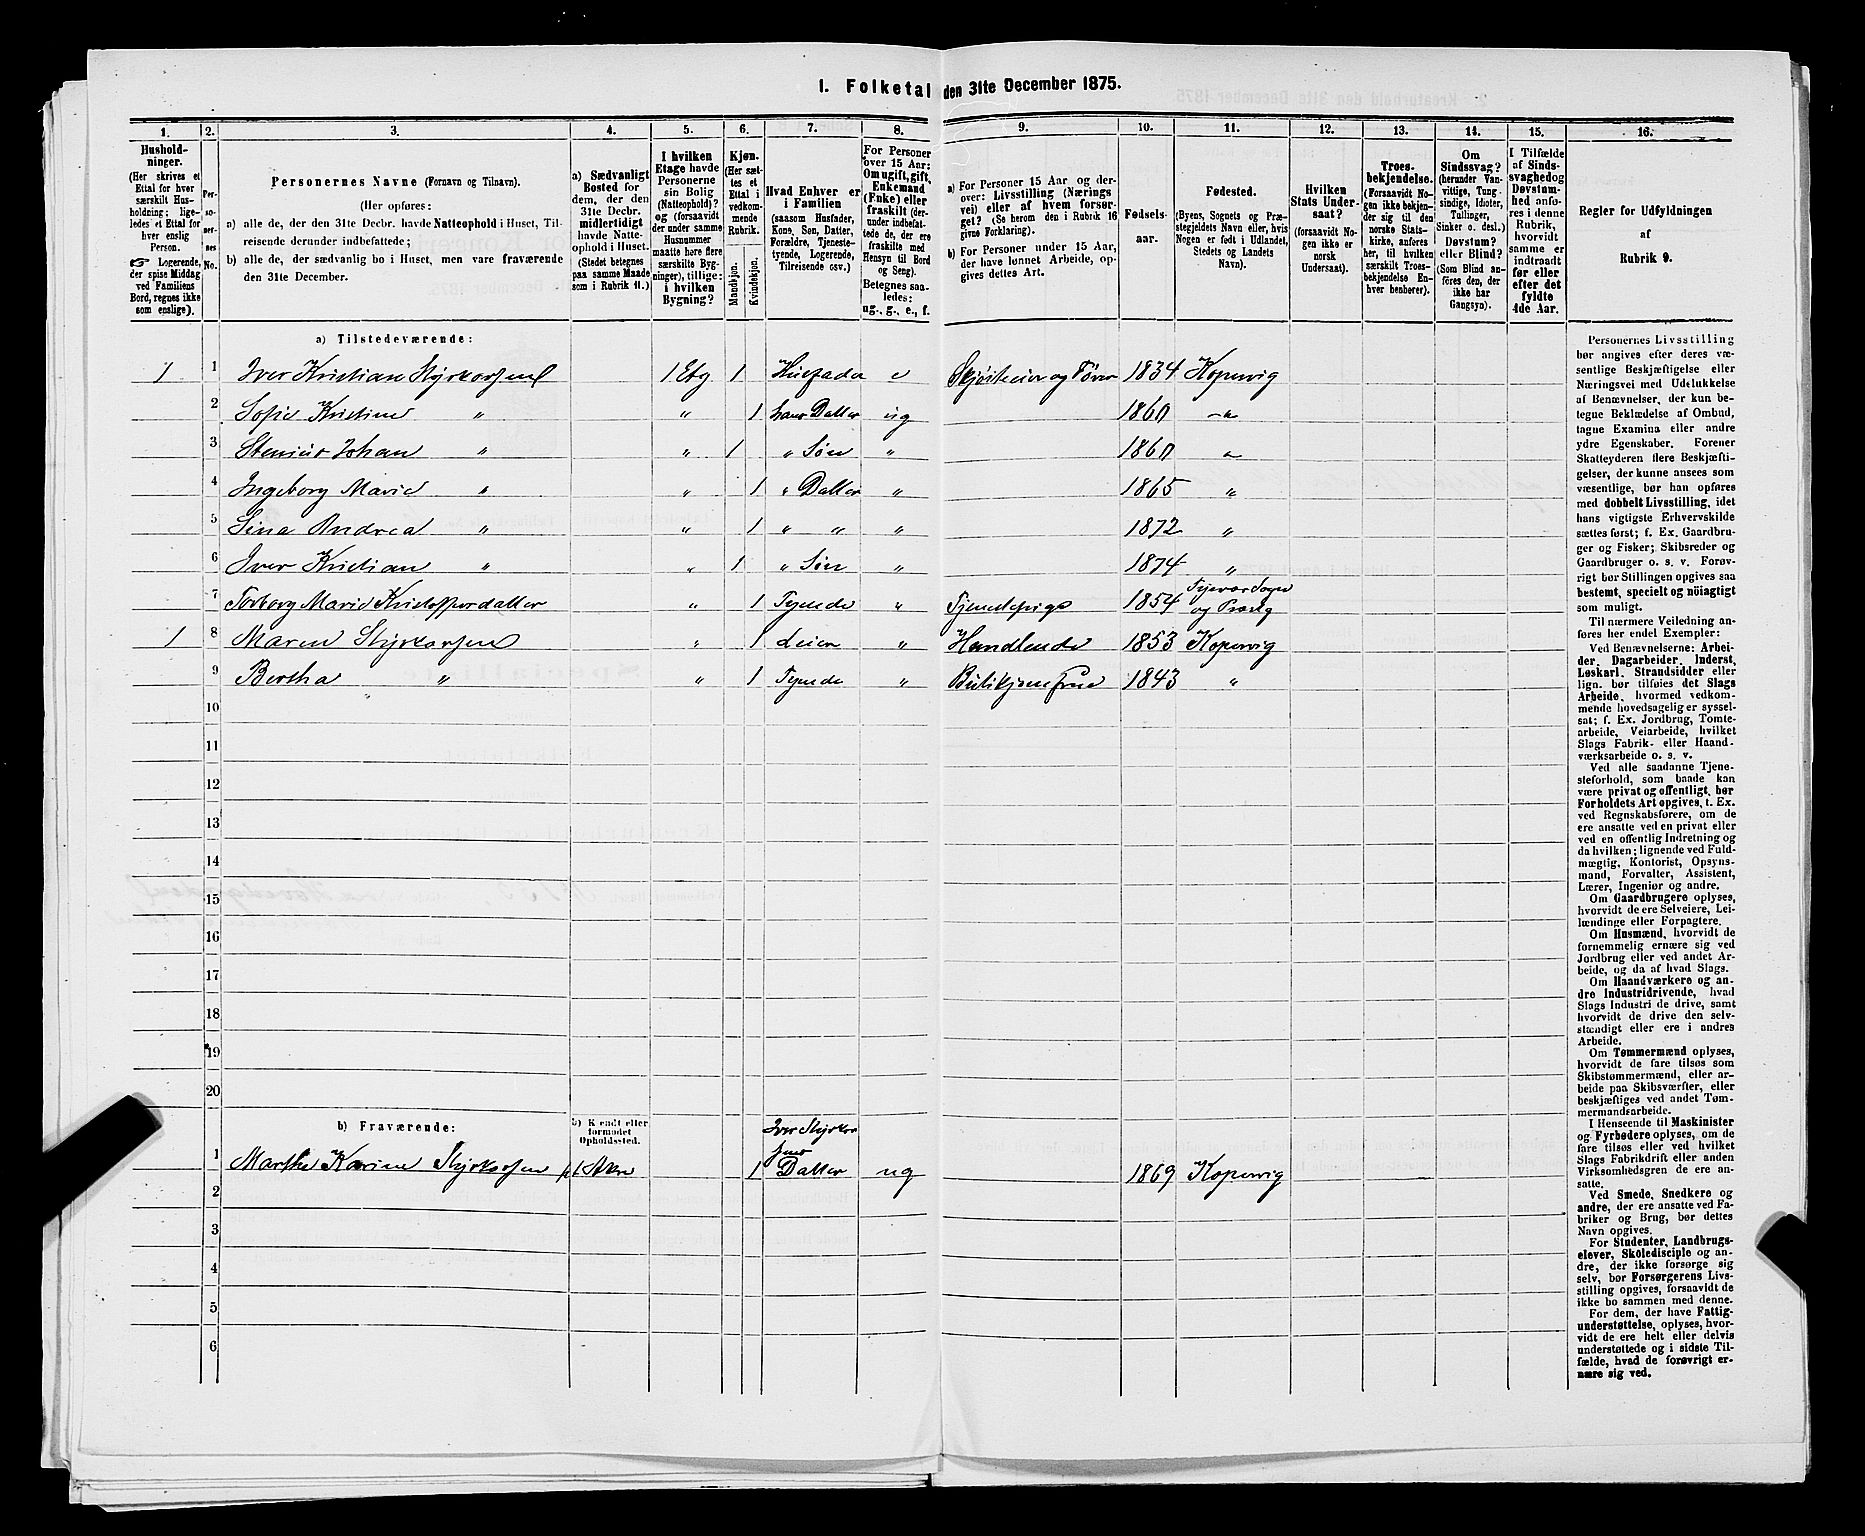 1. Folketal den 31te December 1875.
1. 2. 3. 4. 5. 6. 7. 8. 9. 10. 11. 12. 13. 14. 15. 16.
Hushold-
ninger.
(Her skrives et
Ettal for hver
særskilt Hus-
holdning; lige-
ledes et Ettal for
hver enslig
Person.
☞ Logerende,
der spise Middag
ved Familiens
Bord, regnes ikke
som enslige).
Per-
so-
ner-
nes
No.
Personernes Navne (Fornavn og Tilnavn).
(Her opføres:
a) alle de, der den 31te Decbr. havde Natteophold i Huset, Til-
reisende derunder indbefattede;
b) alle de, der sædvanlig bo i Huset, men vare fraværende
den 31te December.
a) Sædvanligt
Bosted for
dem, der den
31te Decbr.
midlertidigt
havde Natte-
ophold i Huset.
(Stedet betegnes
paa samme Maade
som i Rubrik 11.)
I hvilken
Etage havde
Personerne
sin Bolig
(Natteophold)?
og (forsaavidt
der under samme
Husnummer
maatte høre flere
særskilte Byg-
ninger), tillige:
i hvilken
Bygning?
Kjøn.
(Her sæt-
tes et
Ettal i
vedkom-
mende
Rubrik.
Mandkjøn.
Kvindekjøn.
Hvad Enhver er
i Familien
(saasom Husfader,
Kone, Søn, Datter,
Forældre, Tjeneste-
tyende, Logerende,
Tilreisende osv.)
For Personer
over 15 Aar:
Om ugift, gift,
Enkemand
(Enke) eller
fraskilt (der-
under indbefat-
tede de, der ere
fraskilte med
Hensyn til Bord
og Seng).
Betegnes saa-
ledes:
ug., g., e., f.
a) For Personer 15 Aar og der-
over: Livsstilling (Nærings
vei) eller af hvem forsør-
get? (Se herom den i Rubrik 16
givne Forklaring).
b) For Personer under 15 Aar,
der have lønnet Arbeide, op-
gives dettes Art.
Fødsels-
aar.
Fødested.
(Byens, Sognets og Præ-
stegjeldets Navn eller, hvis
Nogen er født i Udlandet,
Stedets og Landets
Navn).
Hvilken
Stats Under-
saat?
(forsaavidt No-
gen ikke er
norsk
Undersaat).
Troes-
bekjendelse.
(Forsaavidt No-
gen ikke bekjen-
der sig til den
norske Stats-
kirke, anføres
her, til hvilken
særskilt Troes-
bekjendelse En-
hver henhører).
Om
Sindssvag?
(herunder Van-
vittige, Tung-
sindige, Idioter,
Tullinger,
Sinker o. desl.)
Døvstum?
eller Blind?
(Som Blind an-
føres den, der
ikke har
Gangsyn).
I Tilfælde
af Sinds-
svaghed og
Døvstum-
hed anfø-
res i denne
Rubrik,
hvorvidt
samme er
indtraadt
før eller
efter det
fyldte
4de Aar.
Regler for Udfyldningen
af
Rubrik 9.
a) Tilstedeværende:
1 1 Iver Kristian Styrkorsen 1 Etg 1 Husfader e Skjøsteier og Fører 1834 Kopervig
2 Sofie Kristine " " 1 hans Datter ug 1860 "
3 Stenius Johan " " 1 " Søn " 1860 "
4 Ingeborg Marie " " 1 " Datter " 1865 "
5 Sina Andrea " " 1 " " " 1872 "
6 Iver Kristian " " 1 " Søn " 1874 "
7 Torborg Marie Kristoffersdatter " 1 Tyende " Tjenestepige 1854 og Præstg
1 8 Maren Styrkorsen " 1 Leier " Handlende 1853 Kopervig
9 Bertha " " 1 Tyende " 1843 "
10
11
12
13
14
15
16
17
18
19
20
b) Fraværende:
b) Kjendt eller
formodet
Opholdssted.
Iver Styrkor
sens
1 Marthe Karine Styrkorsen 1 Datter ug 1869 Kopervig
2
3
4
5
6
Personernes Livsstilling
bør angives efter deres væ-
sentlige Beskjæftigelse eller
Næringsvei med Udelukkelse
af Benævnelser, der kun be-
tegne Beklædelse af Ombud,
tagne Examina eller andre
ydre Egenskaber. Forener
Skatteyderen flere Beskjæfti-
gelser, der kunne ansees som
væsentlige, bør han opføres
med dobbelt Livsstilling, idet
hans vigtigste Erhvervskilde
sættes først; f. Ex. Gaardbru-
ger og Fisker; Skibsreder og
Gaardbruger o. s. v. Forøv-
rigt bør Stillingen opgives saa
bestemt, specielt og nöiagtigt
som muligt.
Til nærmere Veiledning an-
føres her endel Exempler:
Ved Benævnelserne: Arbei-
der, Dagarbeider, Inderst,
Løskarl, Strandsidder eller
lign. bør tilføies det Slags
Arbeide, hvormed vedkom-
mende hovedsagelig er syssel-
sat; f. Ex. Jordbrug, Tomte-
arbeide, Veiarbeide, hvilket
Slags Fabrik- eller Haand-
værksarbeide o. s. v.
Ved alle saadanne Tjene-
steforhold, som baade kan
være privat og offentligt, bør
Forholdets Art opgives, t. Ex.
ved Regnskabsførere, om de
ere ansatte ved en privat eller
ved en offentlig Indretning og
da hvilken; lignende ved Fuld-
mægtig, Kontorist, Opsyns-
mand, Forvalter, Assistent,
Lærer, Ingeniør og andre.
Om Gaardbrugere oplyses,
hvorvidt de ere Selveiere, Lei-
lændinge eller Forpagtere.
Om Husmænd, hvorvidt de
fornemmelig ernære sig ved
Jordbrug eller ved andet Ar-
beide, og da af hvad Slags.
Om Haandværkere og an-
dre Industridrivende, hvad
Slags Industri de drive, samt
hvorvidt de drive den selv-
stændigt eller ere i andres
Arbeide.
Om Tømmermænd oplyses,
hvorvidt de fare tilsøs som
Skibstømmermænd, eller ar-
beide paa Skibsværfter, eller
beskjæftiges ved andet Tøm-
mermandsarbeide.
I Henseende til Maskinister
og Fyrbødere oplyses, om de
fare tilsøs eller ved hvilket
Slags Fabrikdrift eller anden
Virksomhedsgren de ere an-
satte.
Ved Smede, Snedkere og
andre, der ere ansatte ved Fa-
briker og Brug, bør dettes
Navn opgives.
For Studenter, Landbrugs-
elever, Skoledisciple og an-
dre, der ikke forsørge sig
selv, bør Forsørgerens Livs-
stilling opgives, forsaavidt de
ikke bo sammen med denne.
For dem, der have Fattig-
understøttelse, oplyses, hvor-
vidt de ere helt eller delvis
understøttede og i sidste Til-
fælde, hvad de forøvrigt er-
nære sig ved.